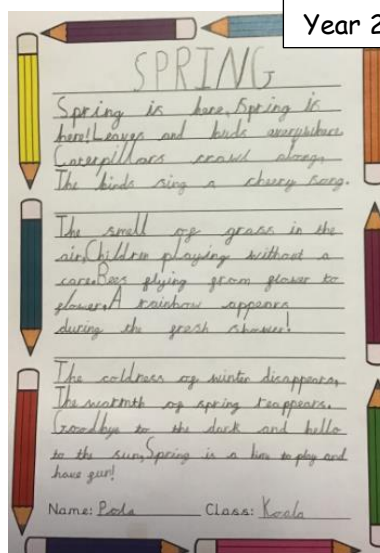 Year 2
SPRING
Spring is here, Spring is
here! Leaves and birds everywhere
Caterpillars crawl along,
The birds sing a cheery song.
The smell of grass in the
air, Children playing without a
care. Bees flying from flower to
flower, A rainbow appears
during the fresh shower!
The coldness of winter disappears,
The warmth of spring reappears.
Goodbye to the dark and hello
to the sun, Spring is a time to play and
have fun!
Name: Class: Koala